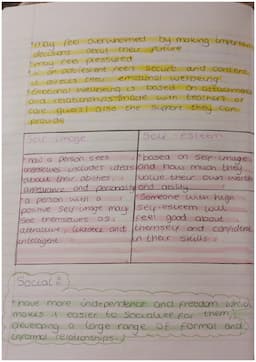 *may feel overwhelmed by making important
decisions about their future
*may feel pressured
*if an adolescent feels secure and content
it affects their emotional wellbeing
*emotional wellbeing is based on attachments
and relationships made with teachers or
care givers also the support they can
provide
Self image
Self esteem
*how a person sees
themselves includes ideas
about their abilities,
appearance and personality
*a person with a
positive self image may
see themselves as
attractive, likeable and
intelligent
*based on self image
and how much they
value their own worth
and ability
*someone with high
self esteem will
feel good about
themself and confident
in their skills
Social:
*have more independence and freedom which
makes it easier to socialise for them,
developing a large range of formal and
informal relationships